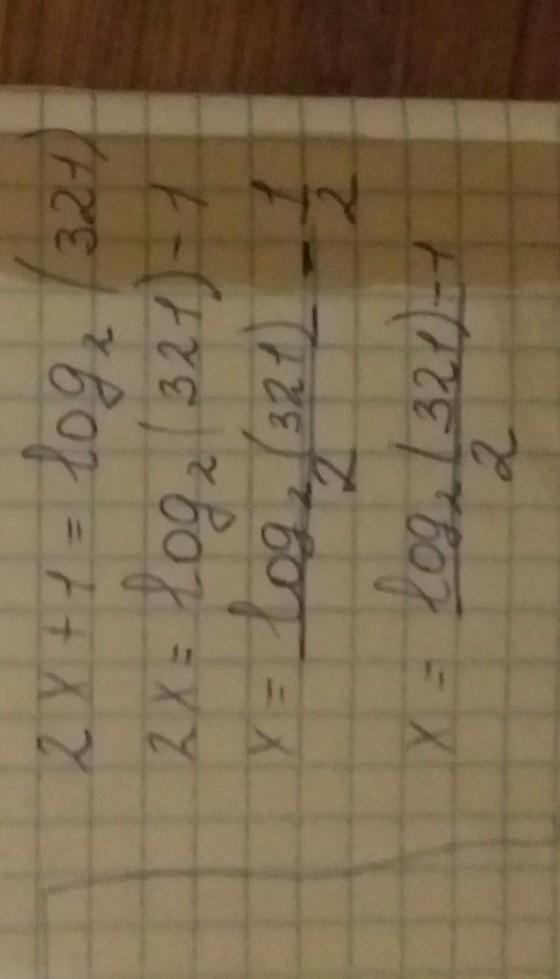 2x+1=log₂(321)
2x=log₂(321)-1
x=log₂(321)/2-1/2
x=(log₂(321)-1)/2